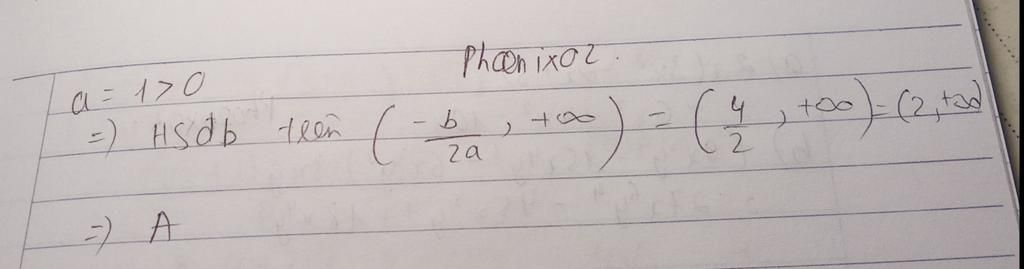 Phœnix02.
a = 1 > 0
=) HSđb trên ( -b/2a , +∞ ) = ( 4/2 , +∞ ) = (2, +∞)
=) A